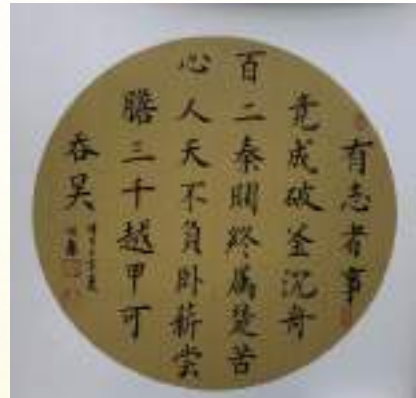 有志者事
竟成破釜沉舟
百二秦關終屬楚苦
心人天不負卧薪嘗
膽三千越甲可
吞吳